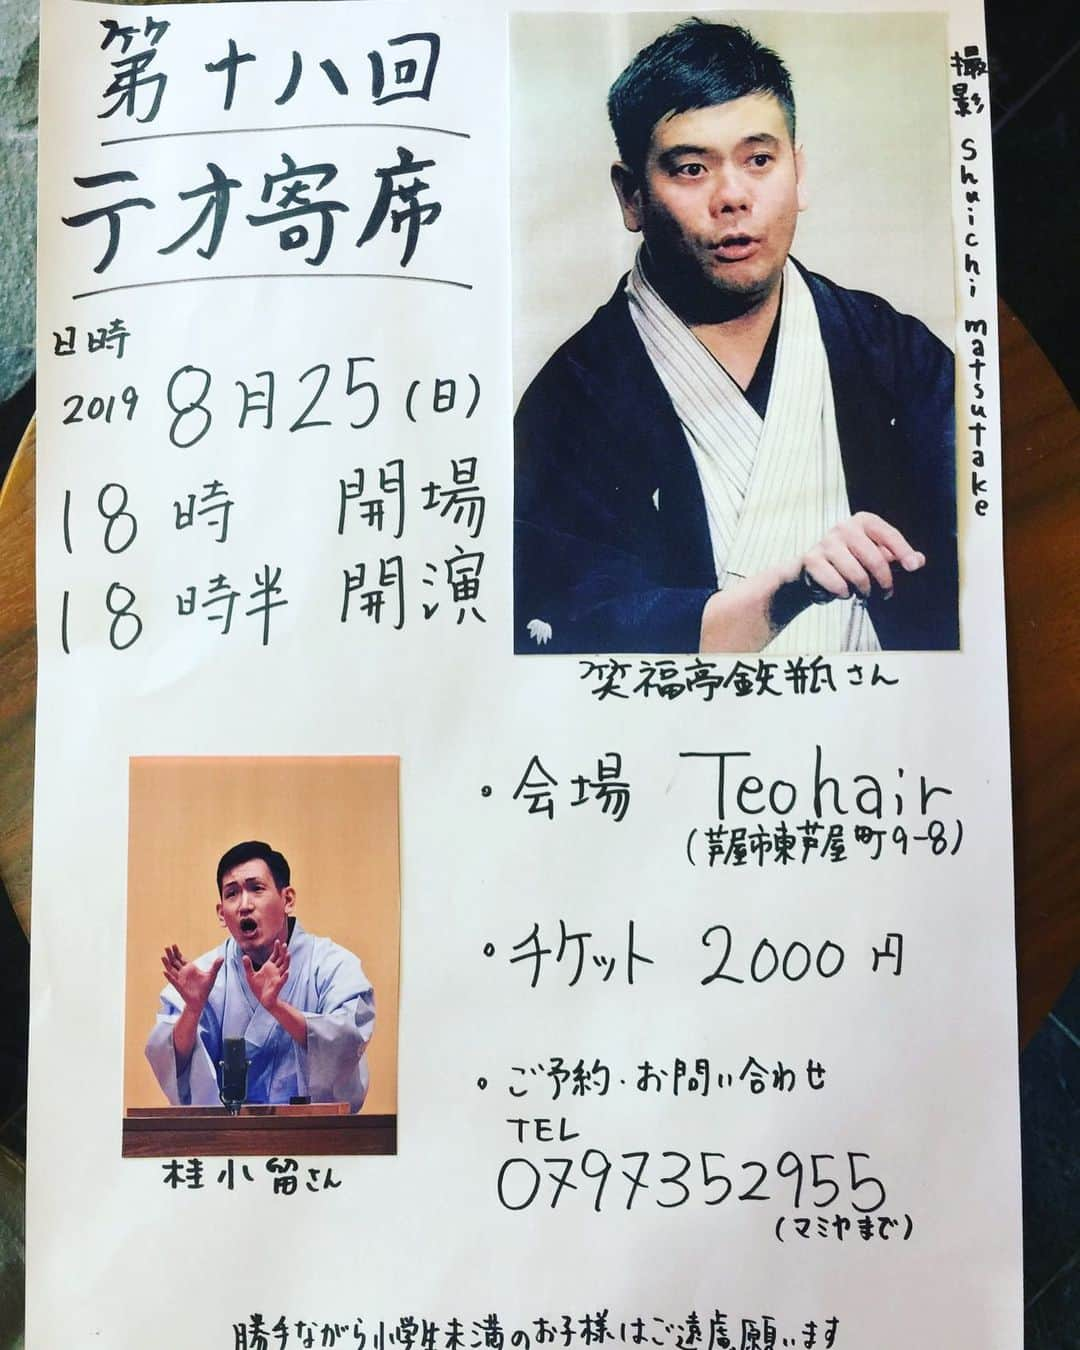 第十八回
テオ寄席
日時
2019 8月25(日)
18時 開場
18時半 開演
撮影 Shuichi matsutake
笑福亭鉄瓶さん
・会場 Teohair
(芦屋市東芦屋町9-8)
・チケット 2000円
・ご予約・お問い合わせ
TEL
0797352955
(マミヤまで)
桂小留さん
勝手ながら小学生未満のお子様はご遠慮願います